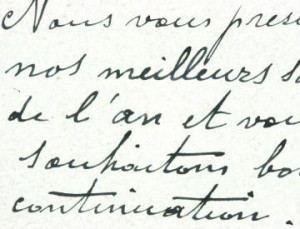 Nous vous prese
nos meilleurs so
de l'an et vou
souhaitons bo
continuation.